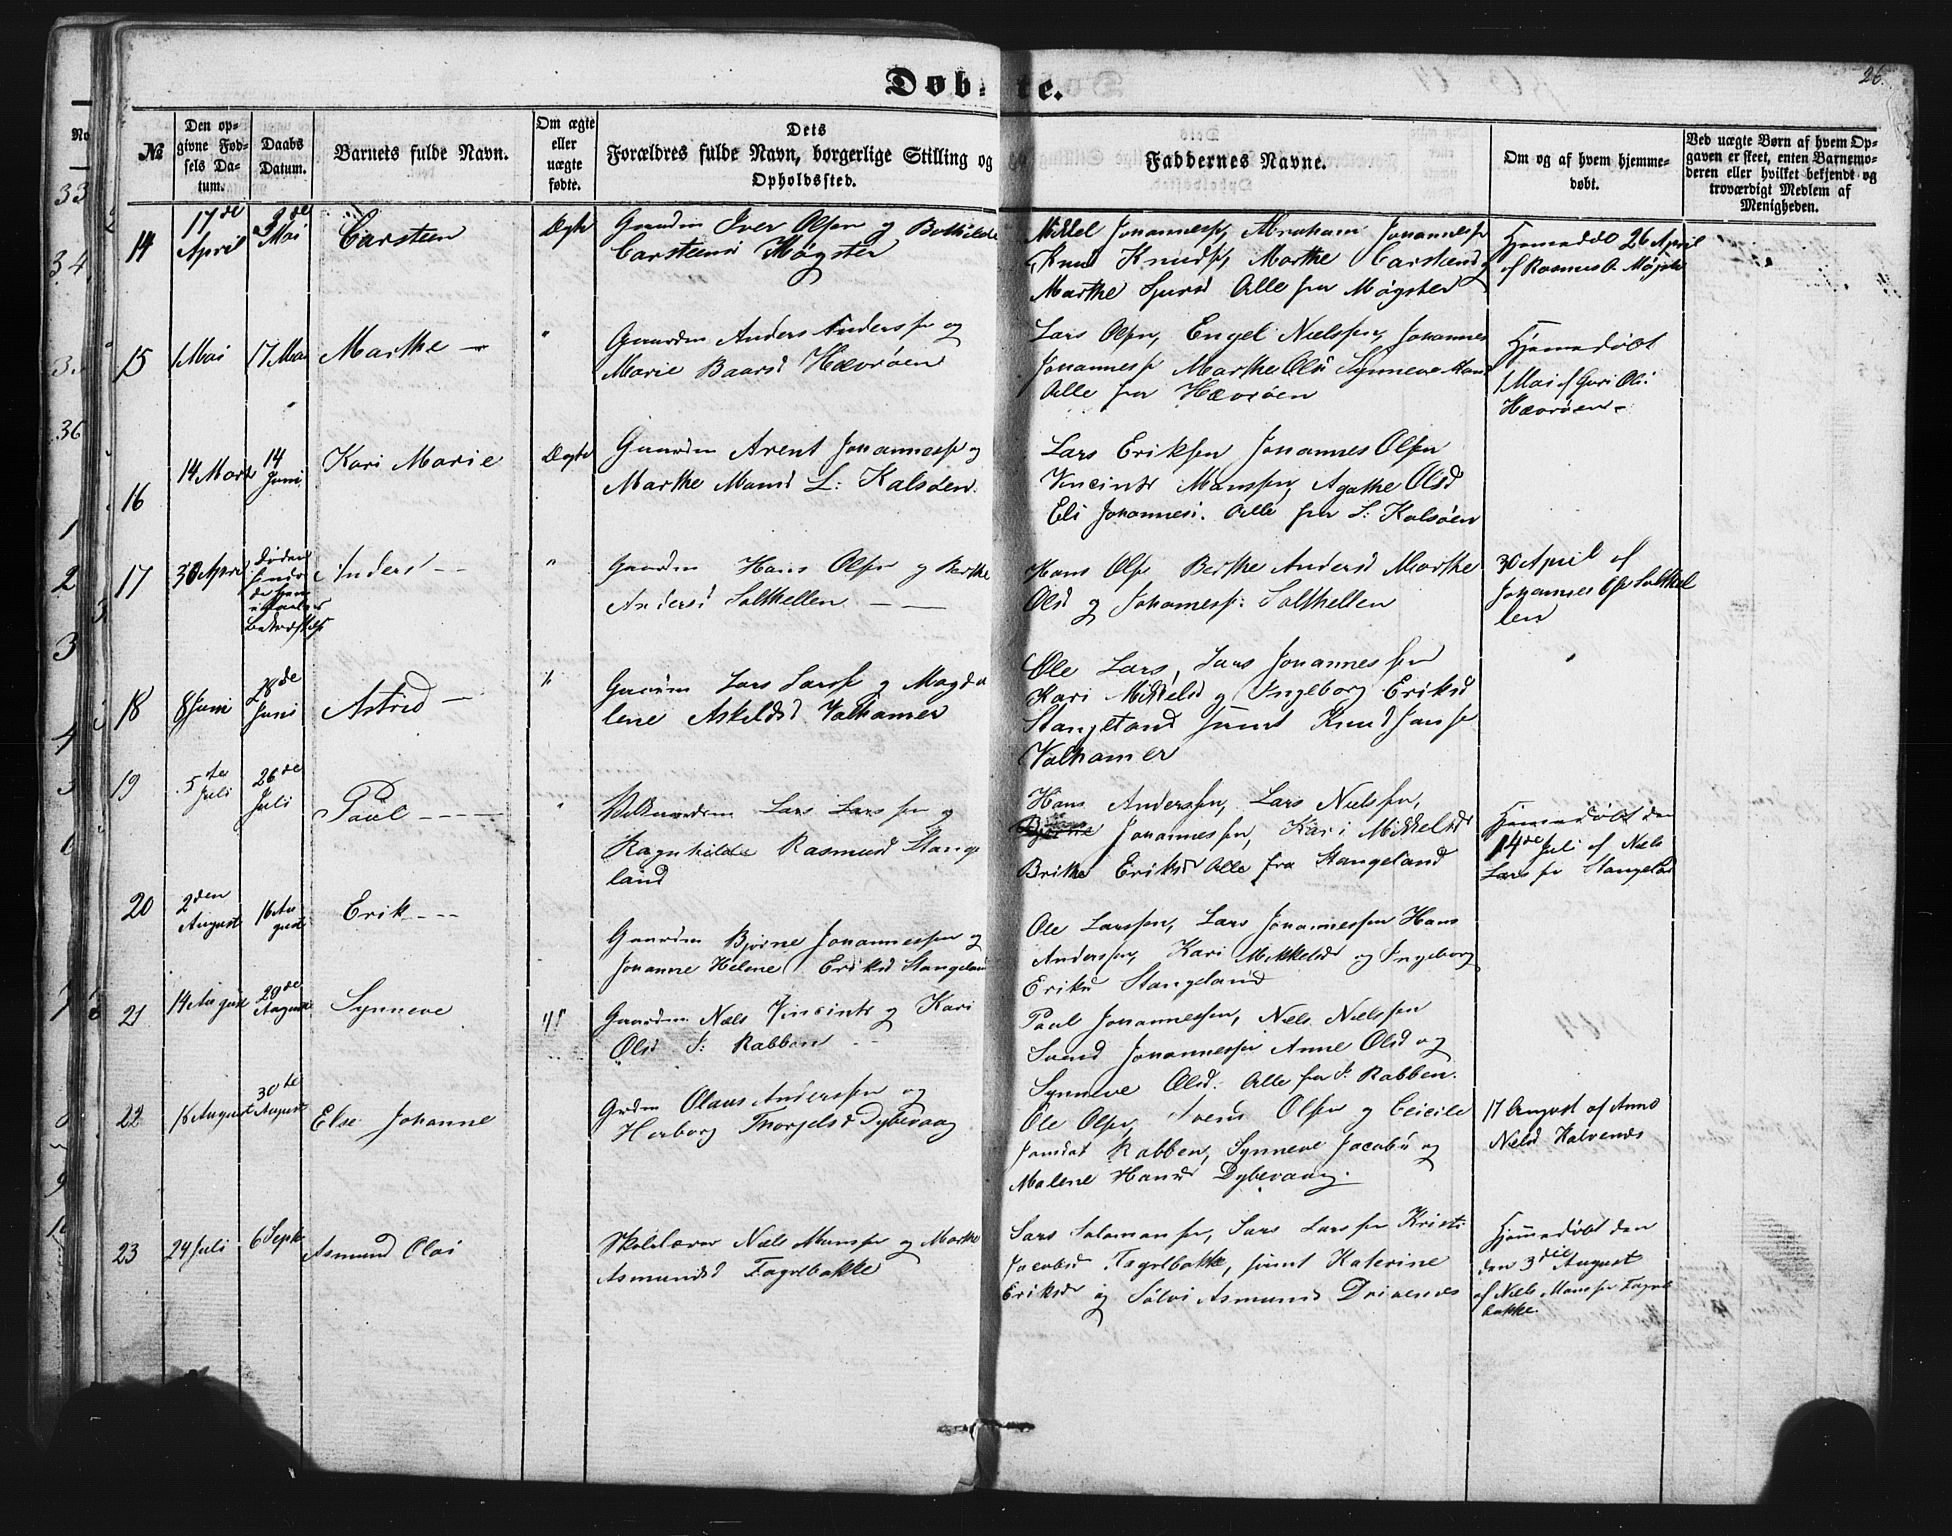 26.
Døbte.
No
№
Den op-
givne Fød-
sels Da-
tum.
Daabs
Datum.
Barnets fulde Navn.
Om ægte
eller
uægte
fødte.
Dets
Forældres fulde Navn, borgerlige Stilling og
Opholdssted.
Faddernes Navne.
Om og af hvem hjemme-
døbt.
Ved uægte Børn af hvem Op-
gaven er skeet, enten Barnemo-
deren eller hvilket bekjendt og
troværdigt Medlem af
Menigheden.
33
34
36
1
2
3
4
14
17de
April
3de
Mai
Carsteen
Ægte
Gaardm Iver Olsen og Bothilde
Carsteens Møgster
Mikkel Johannessen, Abraham Johannessen
Knud Knudsen, Marthe Carsteensd
Marthe Sjursd Alle fra Møgster
Hjemmedøbt 26 April
af Rasmus O. Møgster
15
1 Mai
17 Mai
Marthe —
"
Gaardm Anders Anderssen og
Marie Baarsd Hævrøen
Lars Olsen, Engel Nielssen, Johannes
Johannessen Marthe Olsd Synneve Hansd
Alle fra Hævrøen
Hjemmedøbt
1 Mai af Guri Ols.
Hævrøen
16
14 Marts
14
Juni
Kari Marie
Ægte
Gaardm Arent Johannessen og
Marthe Monsd L: Kalsøen.
Lars Eriksen Johannes Olsen
Vincints Monssen, Agathe Olsd
Eli Johannes. Alle fra L: Kalsøen
17
30 April
Anders --
"
Gaardm Hans Olsen og Berthe
Andersd Salthellen — —
Hans Olsen Berthe Andersd Marthe
Olsd og Johannessen: Salthellen
30 April af
Johannes Olsen Salthel
len
18
8 Juni
28de
Juni
Astrid —
"
Gaardm Lars Larssen og Magda
lene Askeldsd Valhamer
Ole Lars, Lars Johannessen
Kari Mikkelsd og Ingeborg Eriksd
Stangeland samt Knud Jansen
Valhamer
19
5te
Juli
26de
Juli
Paul ----
"
Lars Larssen og
Ragnhilde Rasmusd Stange
land
Hans Anderssen, Lars Nielssen,
Johannessen, Kari Mikkelsd
Brithe Eriksd Alle fra Stangeland
Hjemmedøbt den
14de Juli af Niels
Larssen Stangeland
20
2den
August
16 Au
gust
Erik ---
Gaardm Bjørne Johannessen og
Johanne Helene Eriksd Stangeland
Ole Larssen, Lars Johannessen Hans
Anderssen, Kari Mikkelsd og Ingeborg
Eriksd Stangeland
21
14 August
29de
August
Synneve
"
Gaardm Niels Vincints og Kari
Olsd S: Rabben --
Paul Johannessen, Niels Nielssen
Svend Johannessen Anne Olsd og
Synneve Olsd. Alle fra S. Rabben.
22
16 August
30te
August
Else Johanne
Grdm Olaus Anderssen og
Herborg Thorgelsd Dybevaag
Ole Olsen, Svend Olsen og Ceicile
Jonsdat Rabben, Synneve Jacobsd og
Malene Hansd Dybevaag.
17 August af Anne
Nielsd Kalvenæs
23
24 Juli
6 Septb
Asmund Olai
Skolelærer Niels Monssen og Marthe
Asmundsd Fagelbakke
Lars Salamonsen, Lars Larssen Kristi
Jacobsd Fagelbakke, samt Katerine
Eriksd og Sølvi Asmunds Drivenes
Hjemmedøbt den
den 3die August
af Niels Monssen Fagel
bakke.